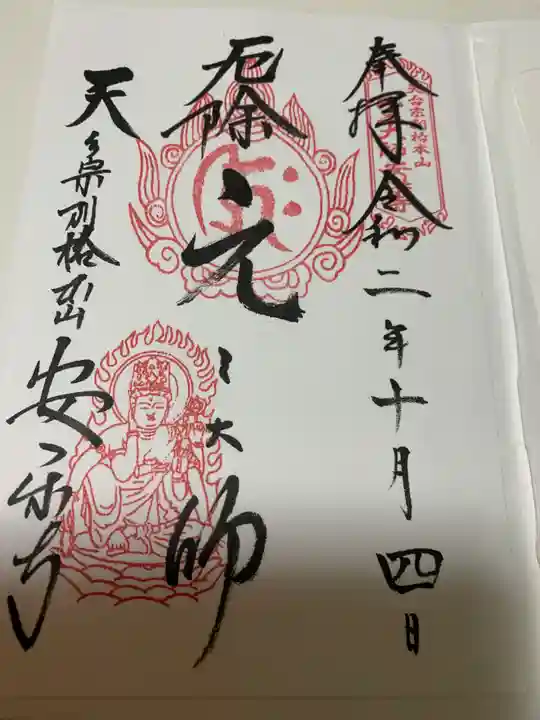 奉拝 令和二年十月四日
天台宗別格本山
厄除 元三大師
天台宗別格本山
安楽寺